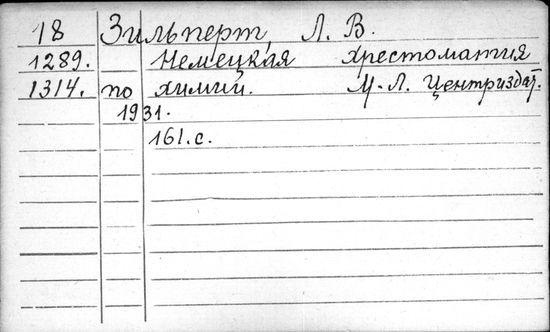 18 Зильперт, Л. В.
1289. Немецкая хрестоматия
1314. по химии. М.-Л. Центриздат.
1931.
161.с.